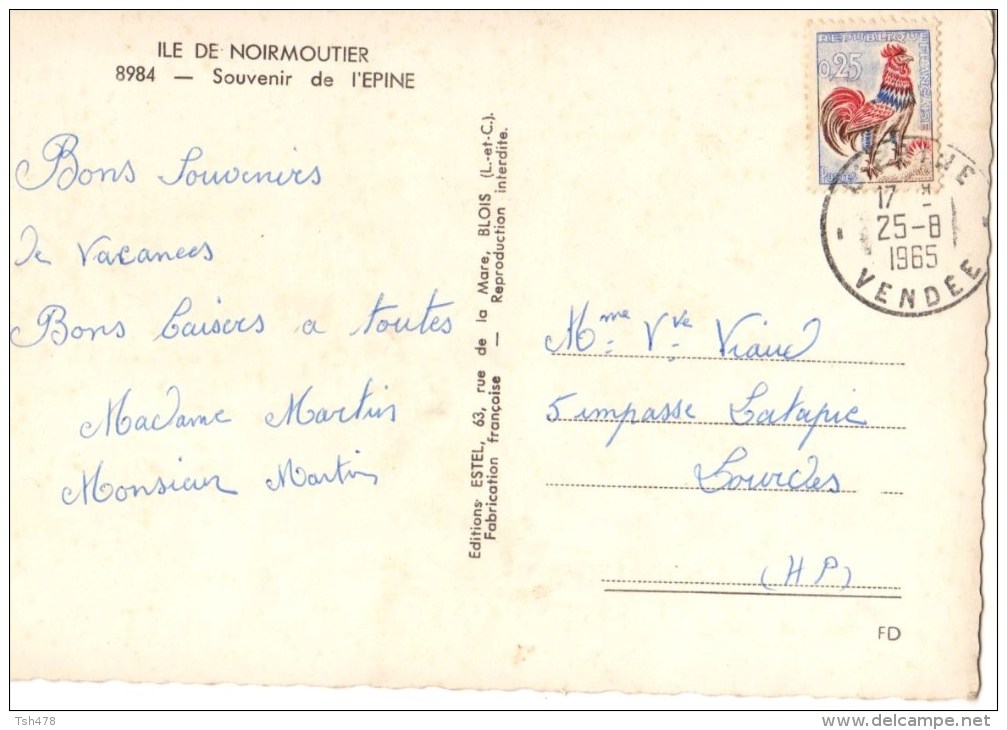 ILE DE NOIRMOUTIER
8984 — Souvenir de l'EPINE
Bons Souvenirs
de Vacances
Bons baisers a toutes
Madame Martin
Monsieur Martin
Editions ESTEL, 63, rue de la Mare, BLOIS (L.-et-C.).
Fabrication française — Reproduction interdite.
REPUBLIQUE FRANÇAISE
0,25
Postes
17 H
25-8
1965
VENDEE
Mme Vve Viaud
5 impasse Latapie
Lourdes
(H P)
FD
Tsh478
www.delcampe.net